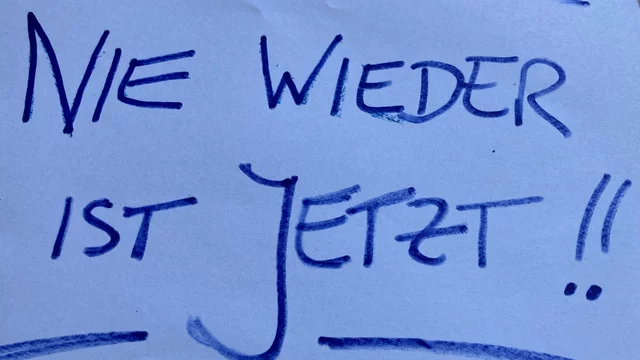 NIE WIEDER
IST JETZT !!